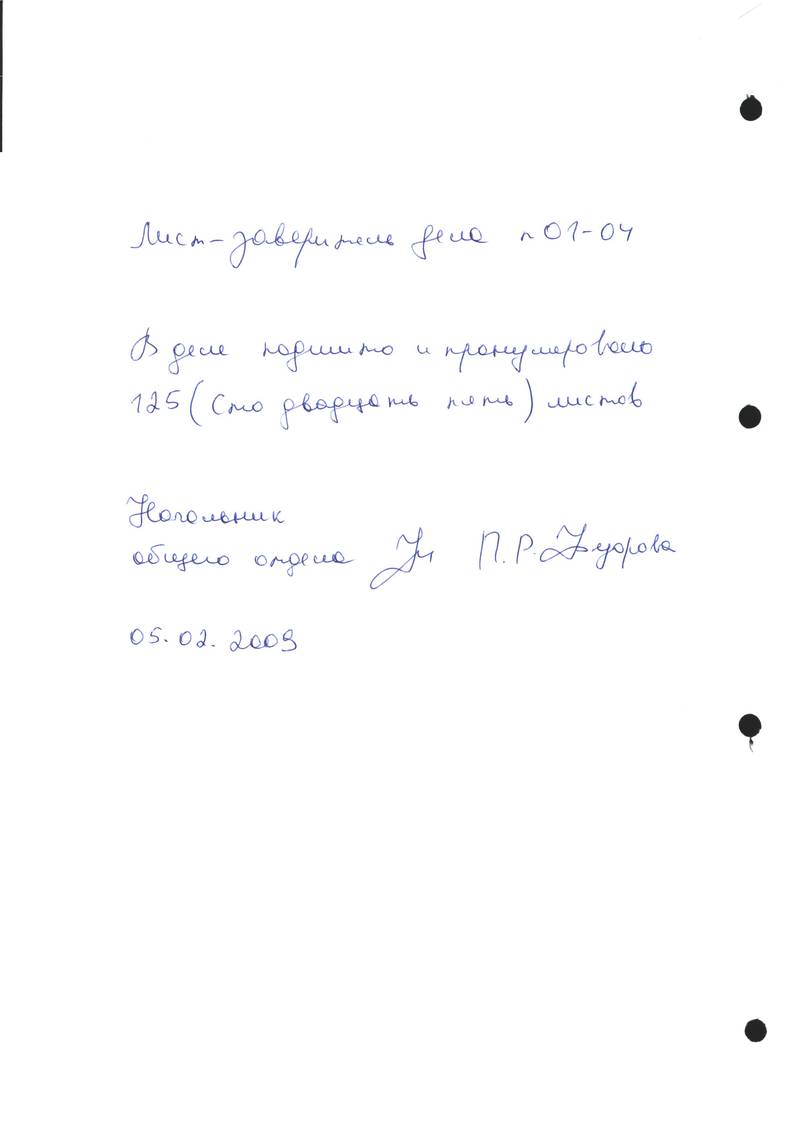 Лист-заверитель дела n 01-04
В деле подшито и пронумеровано
125 (Сто двадцать пять) листов
Начальник
общего отдела П.Р.
05.02.2009